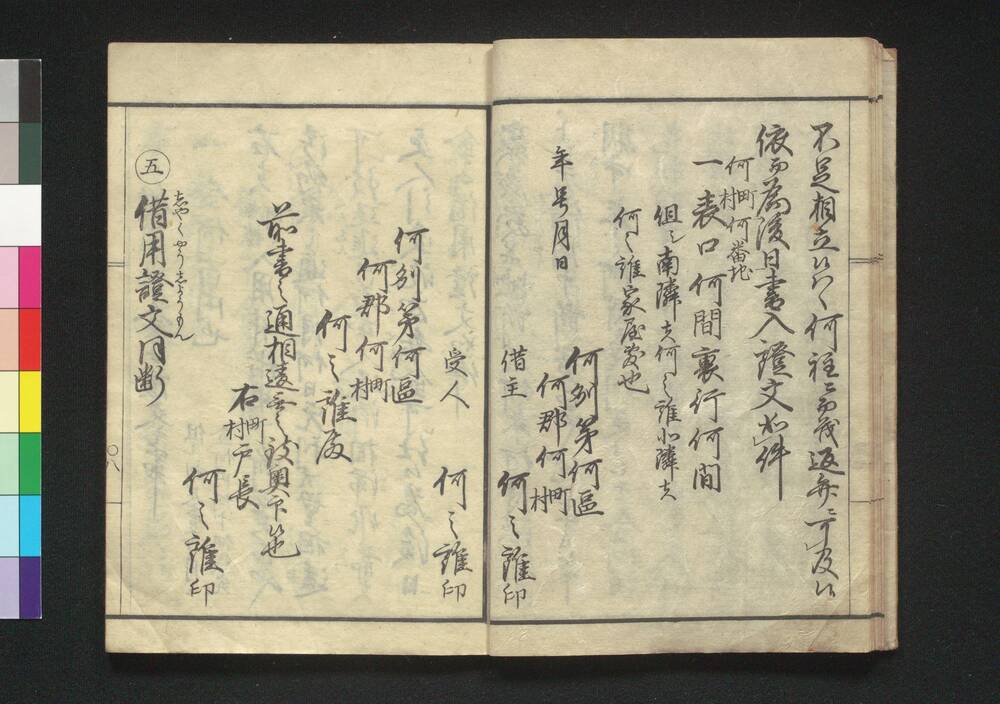 不足相立候ハヽ何程ニ而茂返弁ニ可及候
依而為後日書入證文如件
何町村何番地
一表口何間裏行何間
但シ南隣ハ何之誰北隣ハ
何之誰家屋敷也
年号月日
何列第何區
何郡何町村
借主 何之誰印
受人 何之誰印
何列第何區
何郡何町村
何之誰殿
前書之通相違無之致奥印候也
右町村戸長
何之誰印
五 借用證文同断
しやくやうしようもん